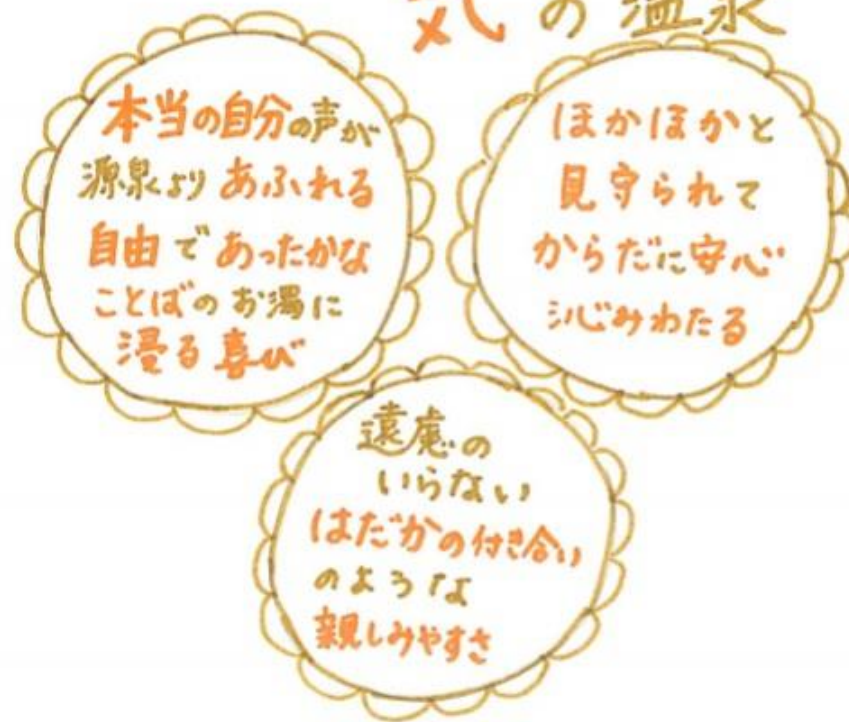 気の温泉
本当の自分の声が
源泉より あふれる
自由で あったかな
ことばの お湯に
浸る喜び
ほかほかと
見守られて
からだに安心
沁みわたる
遠慮の
いらない
はだかの付き合い
のような
親しみやすさ